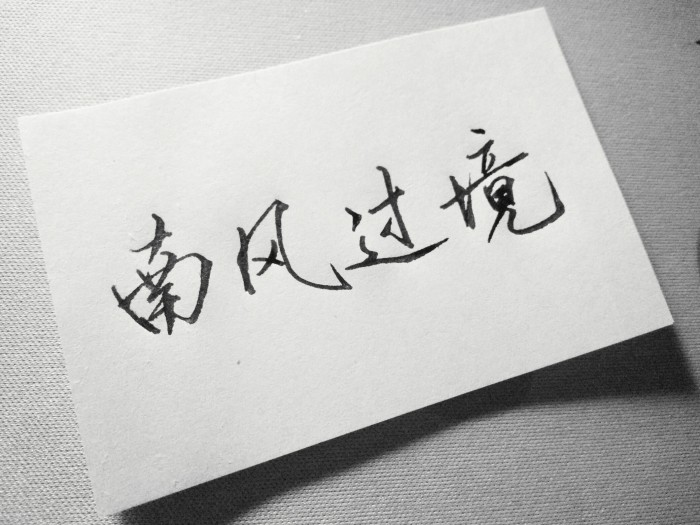 南风过境